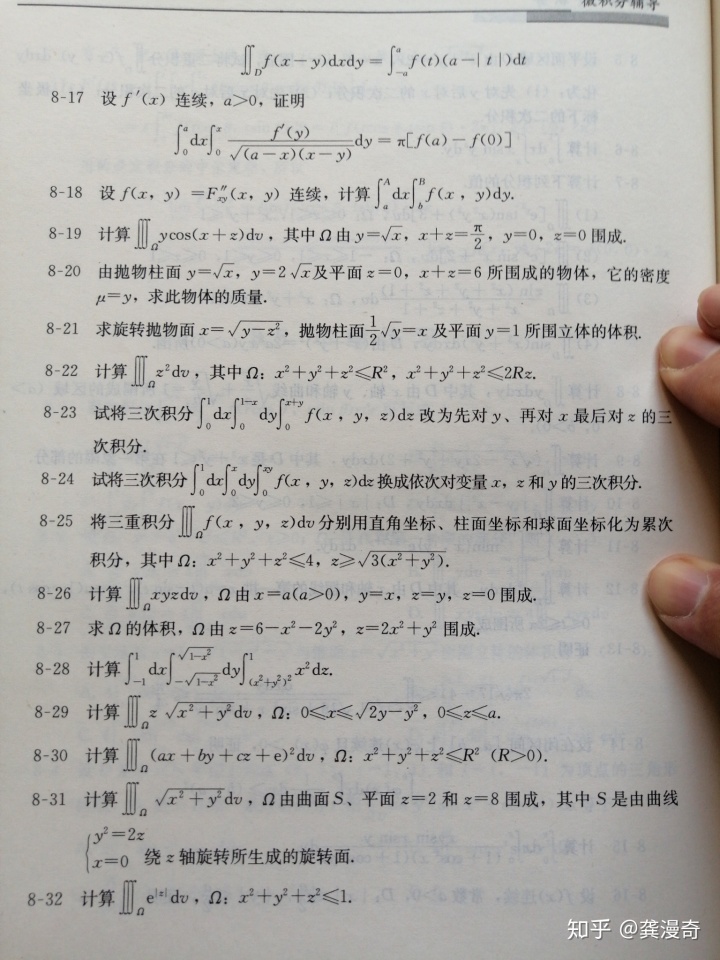 微积分辅导
∬_D f(x-y)dxdy=∫_{-a}^{a} f(t)(a-|t|)dt
8-17 设 f′(x) 连续，a>0，证明
∫_0^a dx∫_0^x f′(y)/√((a-x)(x-y)) dy=π[f(a)-f(0)]
8-18 设 f(x，y)=F″_{xy}(x，y) 连续，计算∫_a^A dx∫_b^B f(x，y)dy.
8-19 计算∭_Ω ycos(x+z)dv，其中Ω由 y=√x，x+z=π/2，y=0，z=0 围成.
8-20 由抛物柱面 y=√x，y=2√x及平面 z=0，x+z=6 所围成的物体，它的密度
μ=y，求此物体的质量.
8-21 求旋转抛物面 x=√(y-z²)，抛物柱面 1/2√y=x 及平面 y=1 所围立体的体积.
8-22 计算∭_Ω z²dv，其中Ω：x²+y²+z²≤R²，x²+y²+z²≤2Rz.
8-23 试将三次积分∫_0^1 dx∫_0^{1-x} dy∫_0^{x+y} f(x，y，z)dz 改为先对 y、再对 x 最后对 z 的三
次积分.
8-24 试将三次积分∫_0^1 dx∫_0^x dy∫_0^{xy} f(x，y，z)dz 换成依次对变量 x，z 和 y 的三次积分.
8-25 将三重积分∭_Ω f(x，y，z)dv 分别用直角坐标、柱面坐标和球面坐标化为累次
积分，其中Ω：x²+y²+z²≤4，z≥√(3(x²+y²)).
8-26 计算∭_Ω xyzdv，Ω由 x=a(a>0)，y=x，z=y，z=0 围成.
8-27 求Ω的体积，Ω由 z=6-x²-2y²，z=2x²+y² 围成.
8-28 计算∫_{-1}^1 dx∫_{-√(1-x²)}^{√(1-x²)} dy∫_{(x²+y²)²}^1 x²dz.
8-29 计算∭_Ω z√(x²+y²)dv，Ω：0≤x≤√(2y-y²)，0≤z≤a.
8-30 计算∭_Ω (ax+by+cz+e)²dv，Ω：x²+y²+z²≤R² (R>0).
8-31 计算∭_Ω √(x²+y²)dv，Ω由曲面 S、平面 z=2 和 z=8 围成，其中 S 是由曲线
{y²=2z
x=0 绕 z 轴旋转所生成的旋转面.
8-32 计算∭_Ω e^{|z|}dv，Ω：x²+y²+z²≤1.
知乎 @龚漫奇